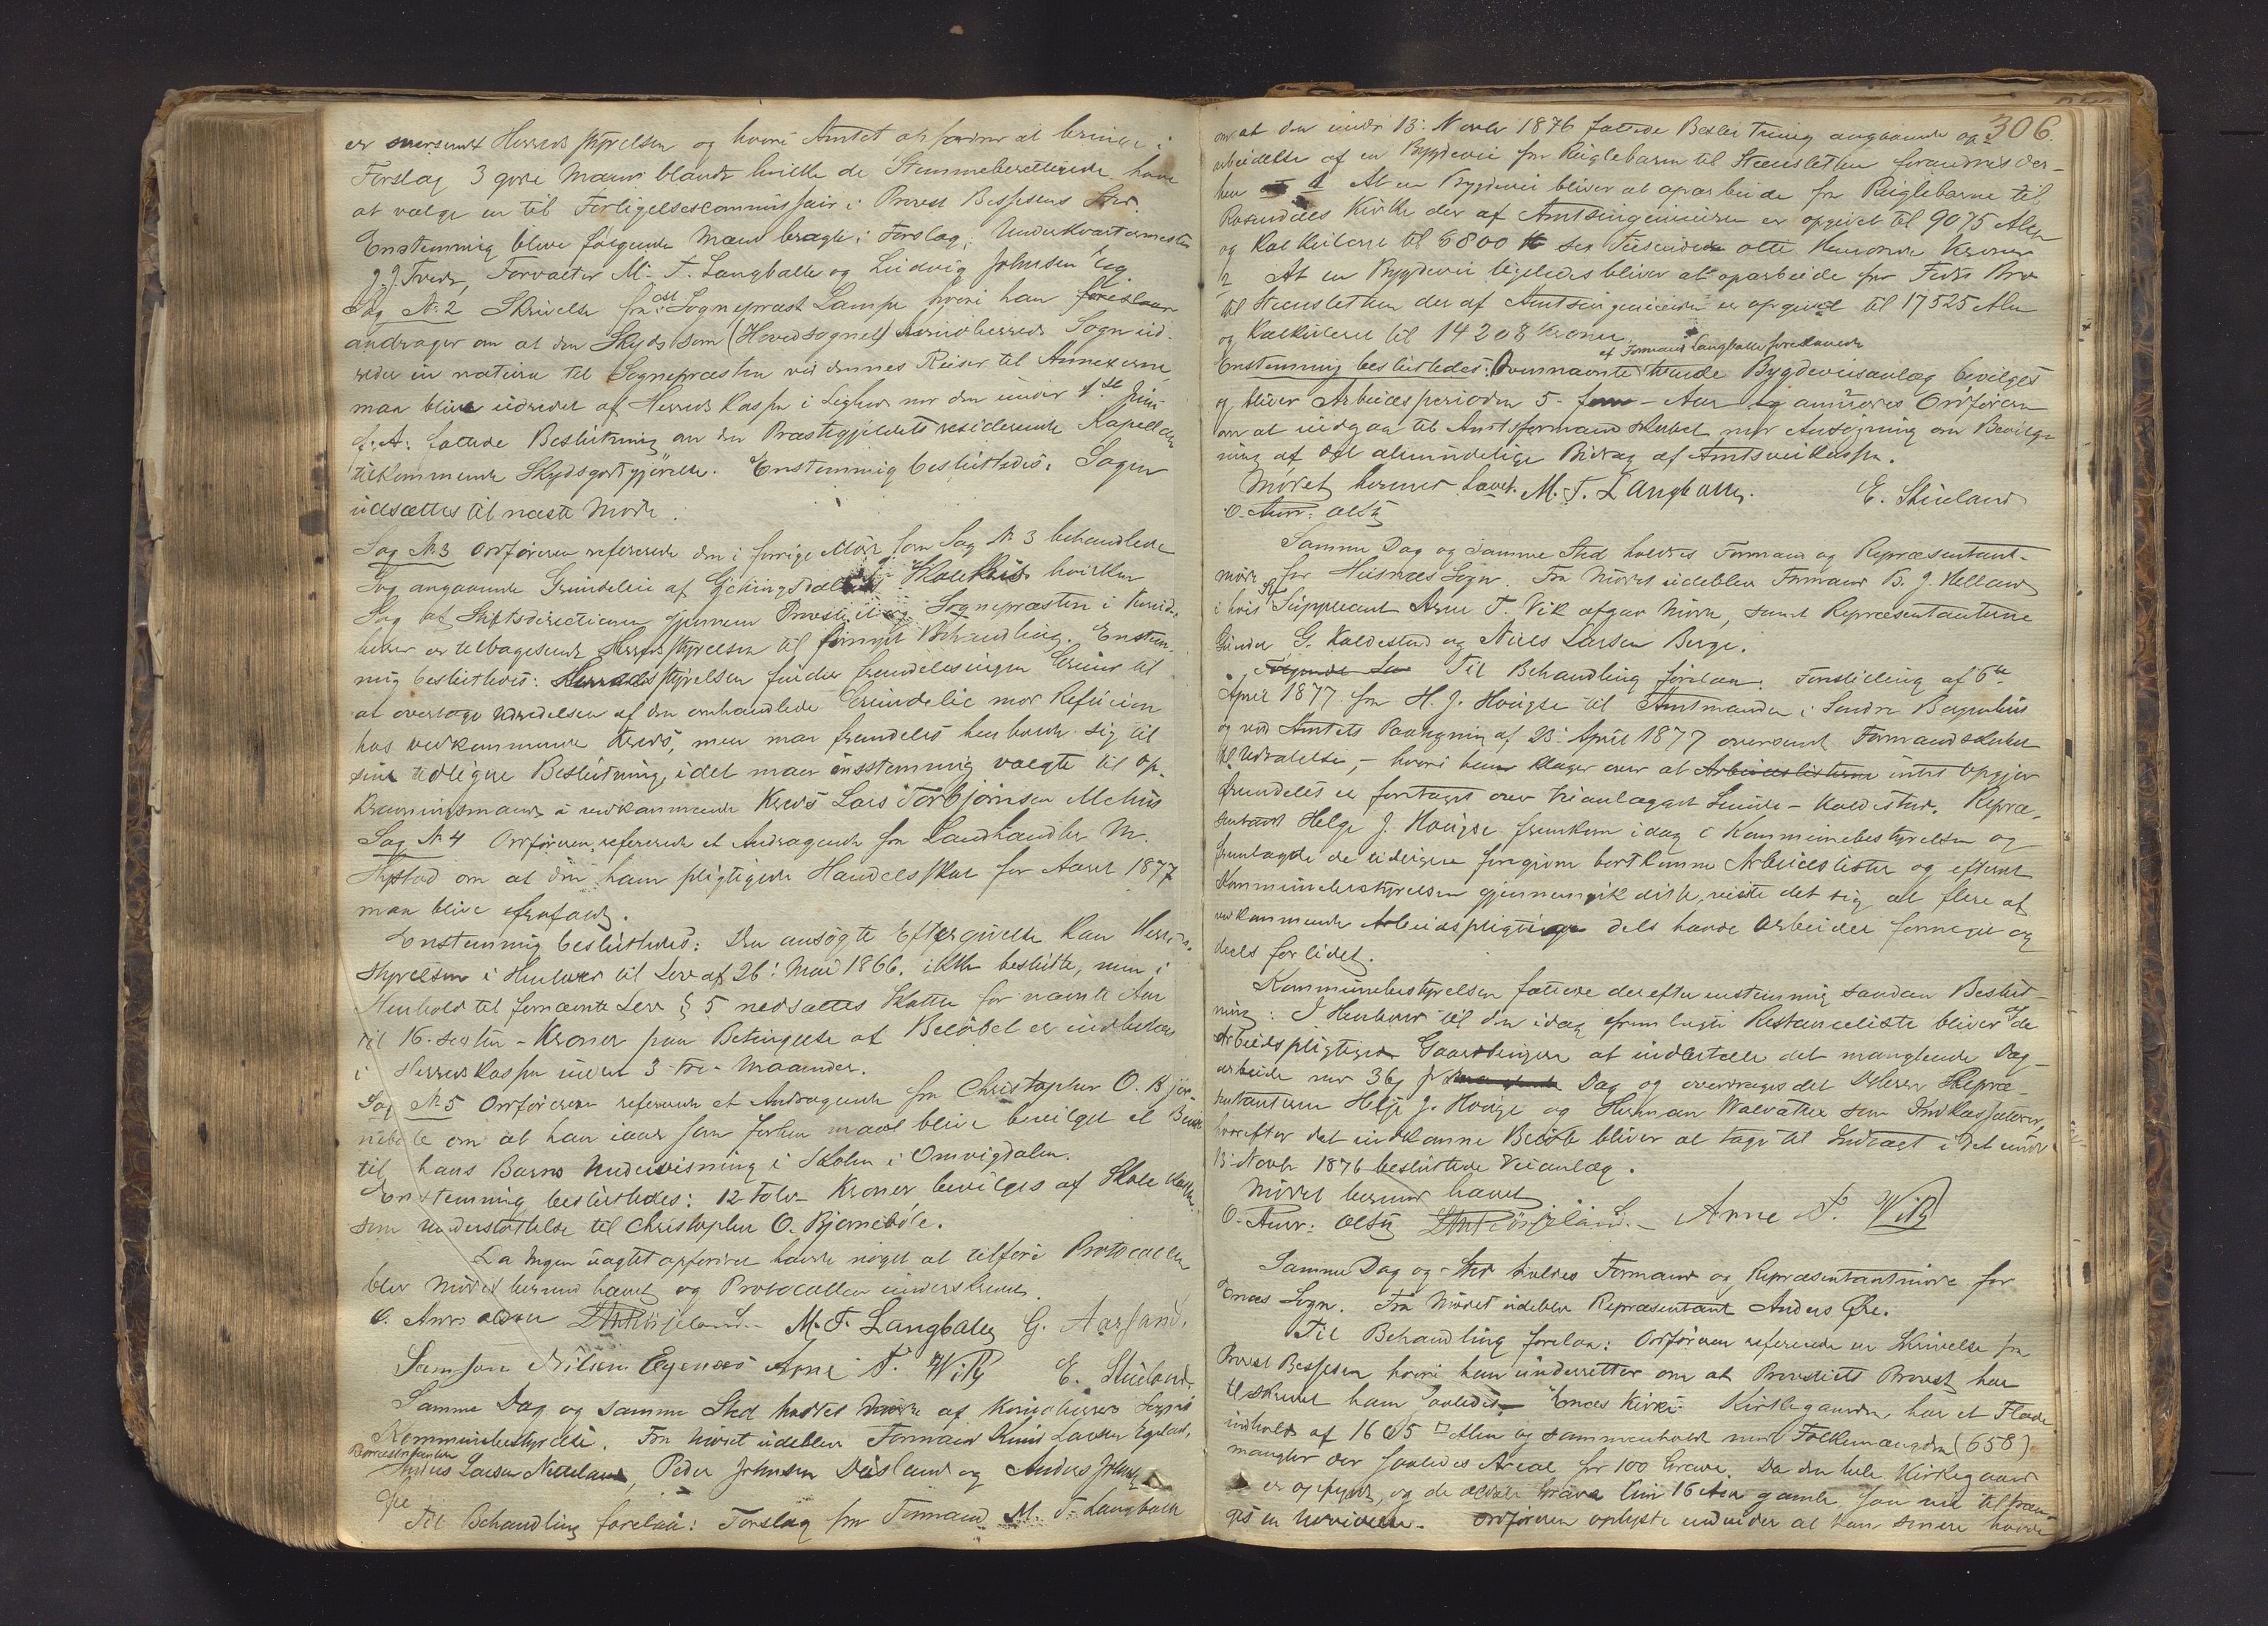 er oversendt Herreds styrelsen og hvori Amtet opfordrer at bringe i
Forslag 3 gode Mænd blandt hvilke de Stemmeberettigede have
at vælge en til Forligelsescommissair i Provst Bessesens Sted.
Enstemmig bleve følgende Mænd bragte i Forslag: Underkvartermester
J. J. Tvedt, Forvalter M. T. Langballe og Ludvig Johnsen
Sag No 2 Skrivelse fra Sogneprest Lampe hvori han foreslaar
andrager om at den Skyds som (Hovedsognet) Kvindherreds Sogn ud-
reder in natura til Sognepræsten ved dennes Reiser til Annexerne,
maa blive udredet af Herreds Kassen i Lighed med den under 1ste Juni
d: A: fattede Beslutning om den Præstegjeldets residerende Kapellan
tilkommende Skydsgodtgjørelse. Enstemmig besluttedes: Sagen
udsættes til næste Møde.
Sag No 3 Ordføreren refererede den i forrige Møde som Sag No 3 behandlede
Sag angaaende Grundeleie af Gjetingsdalens Skolekreds hvilken
Sag af Stiftsdirectionen gjennem Provsti og Sognepræsten i Kvind-
herred er tilbagesendt Herredsstyrelsen til fornyet Behandling. Enstem-
mig besluttedes: Herredsstyrelsen finder fremdeles ingen Grund til
at overtage Udredelsen af den omhandlede Grundeleie mod Refusion
hos vedkommende Kreds, men man fremdeles henholder sig til
sine tidligere Beslutning, idet man ensstemmig valgte til Op-
krævningsmand i vedkommende Kreds Lars Torbjørnsen Mehus
Sag No 4 Ordføreren refererede et Andragende fra Landhandler M.
Hystad om at den ham pligtigede Handelsskat for Aaret 1877
maa blive eftergivet.
Enstemmig besluttedes: Den ansøgte Eftergivelse kan Herreds-
styrelsen i Henhold til Lov af 26: Mai 1866. ikke beslutte, men i
Henhold til fornævnte Lov § 5 nedsættes Skatten for nævnte Aar
til 16 sexten - Kroner paa Betingelse af Beløbet er indbetalt
i Herreds Kassen inden 3 - tre - Maaneder.
Sag No 5 Ordføreren refererede et Andragende fra Christopher O. Bjør-
nebøle om at han iaar som forhen maatte blive bevilget et Bidrag
til hans Barns Undervisning i Skolen i Omvigdalen.
Enstemmig besluttedes: 12 Tolv - Kroner bevilges af Skole Kassen
som Understøttelse til Christopher O. Bjørnebøle.
Da Ingen uagtet opfordret havde noget at tilføre Protocollen
blev Mødet hermed hævet og Protocollen underskrevet.
M. T. Langballe G. Aarsand.
Samson Nilsen Egenæs Arne T. Wik E. Skeeland
Samme Dag og samme Sted holdtes Møde af Kvindherreds Sogns
Kommunebestyrelse. Fra Mødet udeblev Formand Knud Larsen Egeland,
Repræsentanten
Larsen Netteland, Peder Johnsen Deisland og Anders Johnsen
Øie
Til Behandling forelaa: Forslag fra Formand M. T. Langballe
306.
om at den under 13: Novbr 1876 fattede Beslutning angaaende op-
arbeidelse af en Bygdevei fra Riglebaren til Stensletten forandres der-
hen 1 At en Bygdevei bliver at oparbeide fra Riglebaren til
Rosendals Kirke der af Amtsingeniøren er opgivet til 9075 Alen
og Kalkuleret til 6800 sex Tusinde otte Hundrede Kroner
2 At en Bygdevei ligeledes bliver at oparbeide fra Bro
til Stensletten der af Amtsingeniøren er opgivet til 17525 Alen
og Kalkuleret til 14208 Kroner.
af Formand Langballe foreslaaede
Enstemmig besluttedes: Ovennævnte tvende Bygdeveisanlæg bevilges
og bliver Arbeidsperioden 5 - fem - Aar og anmodes Ordføreren
om at indgaa til Amtsformandskabet med Ansøgning om Bevilg-
ning af det almindelige Bidrag af Amtsveikassen.
Mødet hermed hævet. M. T. Langballe. E. Skeeland
Samme Dag og samme Sted holdtes Formand og Repræsentant-
møde for Husnæs Sogn. Fra Mødet udeblev Formand B. J. Helland
i hvis Sted Suppleant Arne T. Vik afgav Møde, samt Repræsentanterne
G. Koldestad og Niels Larsen Berge.
Følgende Sa Til Behandling forelaa: Forestilling af 6te
April 1877 fra H. J. Houge til Amtmanden i Søndre Bergenhus
og ved Amtets Paategning af 23: April 1877 oversendt Formandskabet
til Udtalelse, - hvori han klager over at Arbeideslisterne intet Opgjør
fremdeles er foretaget over Veianlægget Sunde - Koldestad. Repræ-
sentant Helge J. Houge fremkom idag i Kommunebestyrelsen og
fremlagde de tidligere foregivne bortkomne Arbeideslister og efterat
Kommunebestyrelsen gjennemgik disse, viste det sig at flere af
vedkommende Arbeidspligtige dels havde arbeidet formeget og
deels forlidet.
Kommunebestyrelsen fattede derefter enstemmig saadan Beslut-
ning: I Henhold til den idag fremlagte Restanceliste bliver af de
Arbeidspligtige Gaardbrugere at indbetale det manglende Dag-
arbeide med Dag og overdrages det Velærede Repræ-
sentanterne Helje J. Houge og Herman Valvatne som Indkasserere,
hvorefter det indkomne Beløb bliver at tage til Indtægt i Det under
13 Novbr 1876 besluttede Veianlæg.
Mødet hermed hævet
Arne T. Wik
Samme Dag og Sted holdtes Formand og Repræsentantmøde for
Enæs Sogn. Fra Mødet udeblev Repræsentant Anders Øie.
Til Behandling forelaa: Ordføreren refererede en Skrivelse fra
Provst Bessesen hvori han underretter om at Provstiets Provst har
tilskrevet ham saaledes - Enæs Kirkes Kirkegaarden har et Flade-
indhold af 1605 □ Alen og sammenholdt med Folkemængden (658)
mangler der saaledes Areal for 100 Grave. Da den hele Kirkegaard
er opfyldt, og de ældste Grave kun 16 Aar gamle, saa vil til træn-
ges en Udvidelse. Ordføreren oplyste endvidere at han senere havde